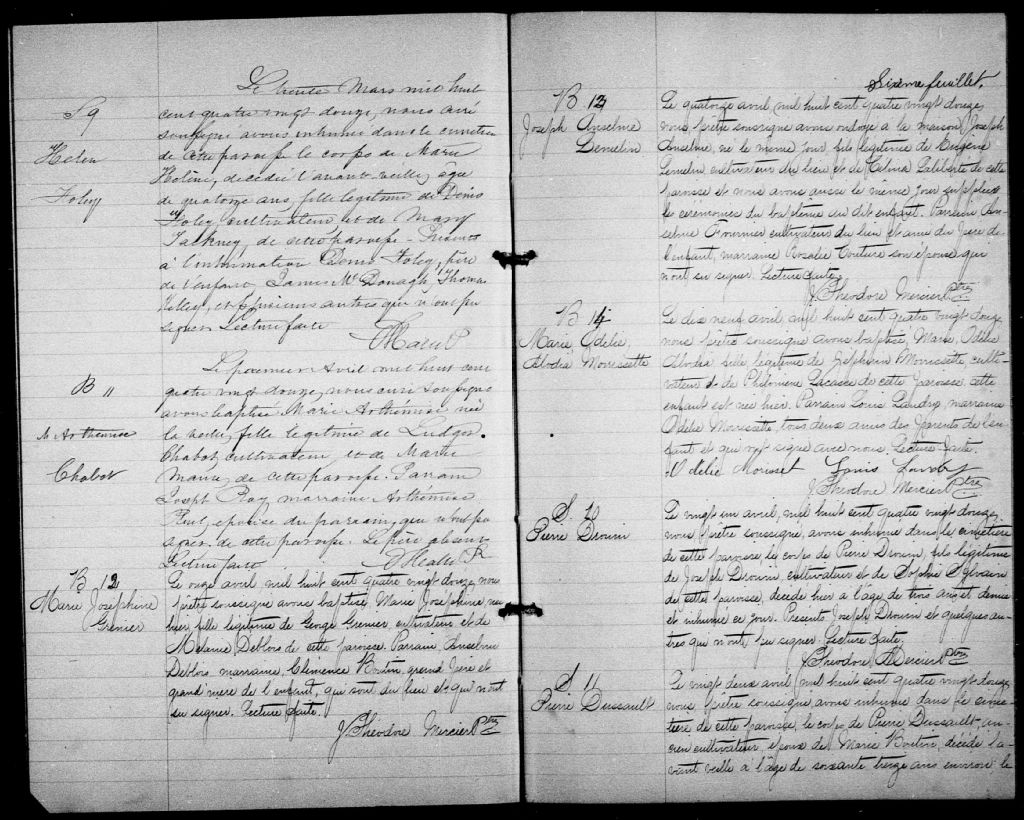 S 9
Helen
Foley
Le trente Mars mil huit
cent quatre vingt douze, nous curé
soussigné avons inhumé dans le cimetière
de cette paroisse le corps de Marie
Helène, décédée l'avant veille, âgée
de quatorze ans, fille légitime de Denis
Foley cultivateur et de Mary
de cette paroisse - Présents
à l'inhumation Denis Foley, père
de l'enfant James McDonagh, Thomas
Kelly, et plusieurs autres qui n'ont pu
signer. Lecture faite
B 11
M Arthémise
Chabot
Le premier Avril mil huit cent
quatre vingt douze, nous curé soussigné
avons baptisé Marie Arthémise née
la veille, fille légitime de Ludger
Chabot, cultivateur et de Marie
de cette paroisse. Parrain
Joseph Roy, marraine Arthémise
épouse du parrain, qui n'ont pu
signer, de cette paroisse. Le père absent
Lecture faite
B 12
Marie Joséphine
Grenier
Le onze avril mil huit cent quatre vingt douze, nous
prêtre soussigné avons baptisé Marie Joséphine, née
hier, fille légitime de George Grenier cultivateur et de
Mélanie Deblois de cette paroisse. Parrain, Anselme
Deblois, marraine, Clémence Boutin, grand père et
grand'mère de l'enfant, qui sont du lieu et qui n'ont
su signer. Lecture faite.
J Théodore Mercier Ptre
Sixième feuillet.
B 13
Joseph Anselme
Lemelin
Le quatorze avril, mil huit cent quatre vingt douze,
nous prêtre soussigné avons ondoyé à la maison, Joseph
Anselme, né le même jour, fils légitime de Eugène
Lemelin cultivateur du lieu et de Zelma Laliberté de cette
paroisse et nous avons aussi le même jour suppléé
les cérémonies du baptême au dit enfant. Parrain An-
selme Fournier cultivateur du lieu et ami du père de
l'enfant, marraine Rosalie Couture son épouse qui
n'ont su signer. Lecture faite.
J Théodore Mercier Ptre
B 14
Marie Odélie
Alodia Morissette
Le dix neuf avril, mil huit cent quatre vingt douze
nous prêtre soussigné avons baptisé, Marie, Odélie
Alodia fille légitime de Zéphirin Morissette culti-
vateur et de Philomène Lacasse de cette paroisse, cette
enfant est née hier. Parrain Louis Landry, marraine
Odélie Morissette, tous deux amis des parents de l'en-
fant et qui ont signé avec nous. Lecture faite.
Odélie Morisset Louis Landry
J Théodore Mercier Ptre
S. 10
Pierre Drouin
Le vingt un avril, mil huit cent quatre vingt douze,
nous prêtre soussigné, avons inhumé dans le cimetière
de cette paroisse, le corps de Pierre Drouin, fils légitime
de Joseph Drouin, cultivateur et de Sophie Sylvain
de cette paroisse, décédé hier à l'age de trois ans et demie
et inhumé ce jour. Présents Joseph Drouin et quelques au-
tres qui n'ont su signer. Lecture faite.
J Théodore Mercier Ptre
S 11
Pierre Dussault
Le vingt deux avril, mil huit cent quatre vingt douze,
nous prêtre soussigné avons inhumé dans le cime-
tière de cette paroisse, le corps de Pierre Dussault, an-
cien cultivateur, époux de Marie Boutin, décédé l'a-
vant veille à l'âge de soixante treize ans environ, le